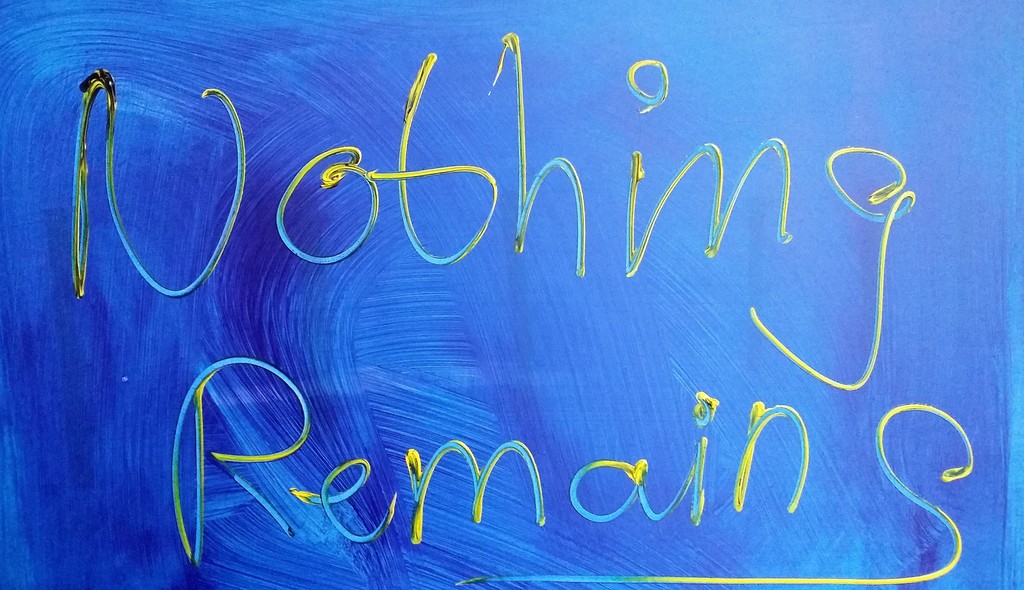 Nothing
Remains